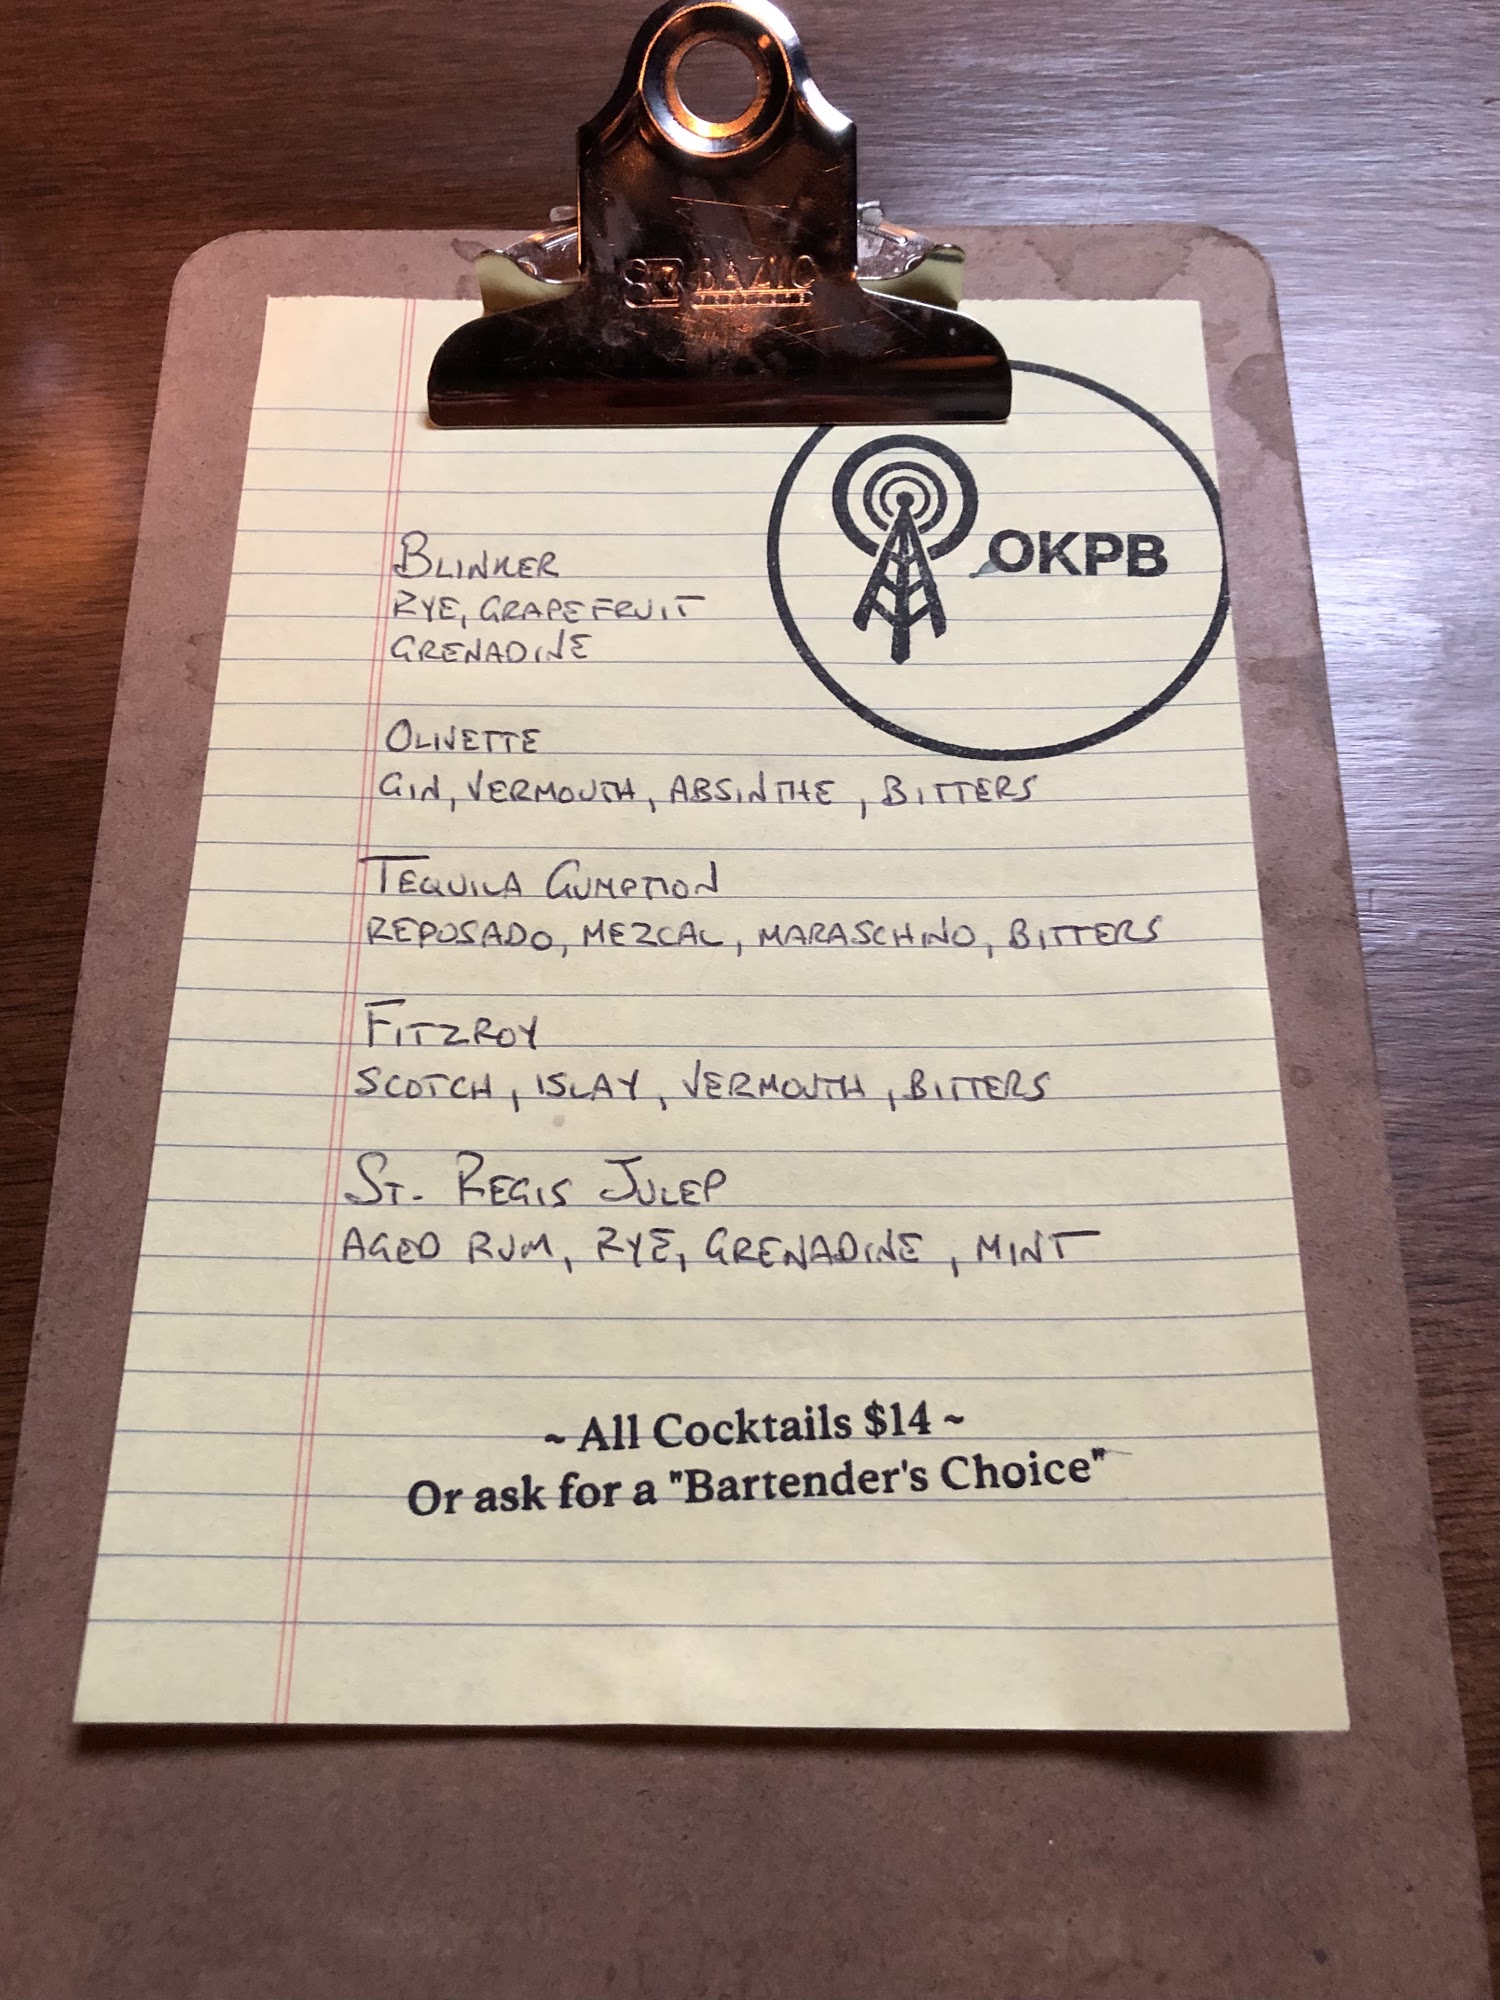 BAZIC
OKPB
BLINKER
RYE, GRAPEFRUIT
GRENADINE
OLIVETTE
GIN, VERMOUTH, ABSINTHE, BITTERS
TEQUILA GUMPTION
REPOSADO, MEZCAL, MARASCHINO, BITTERS
FITZROY
SCOTCH, ISLAY, VERMOUTH, BITTERS
ST. REGIS JULEP
AGED RUM, RYE, GRENADINE, MINT
~ All Cocktails $14 ~
Or ask for a "Bartender's Choice"